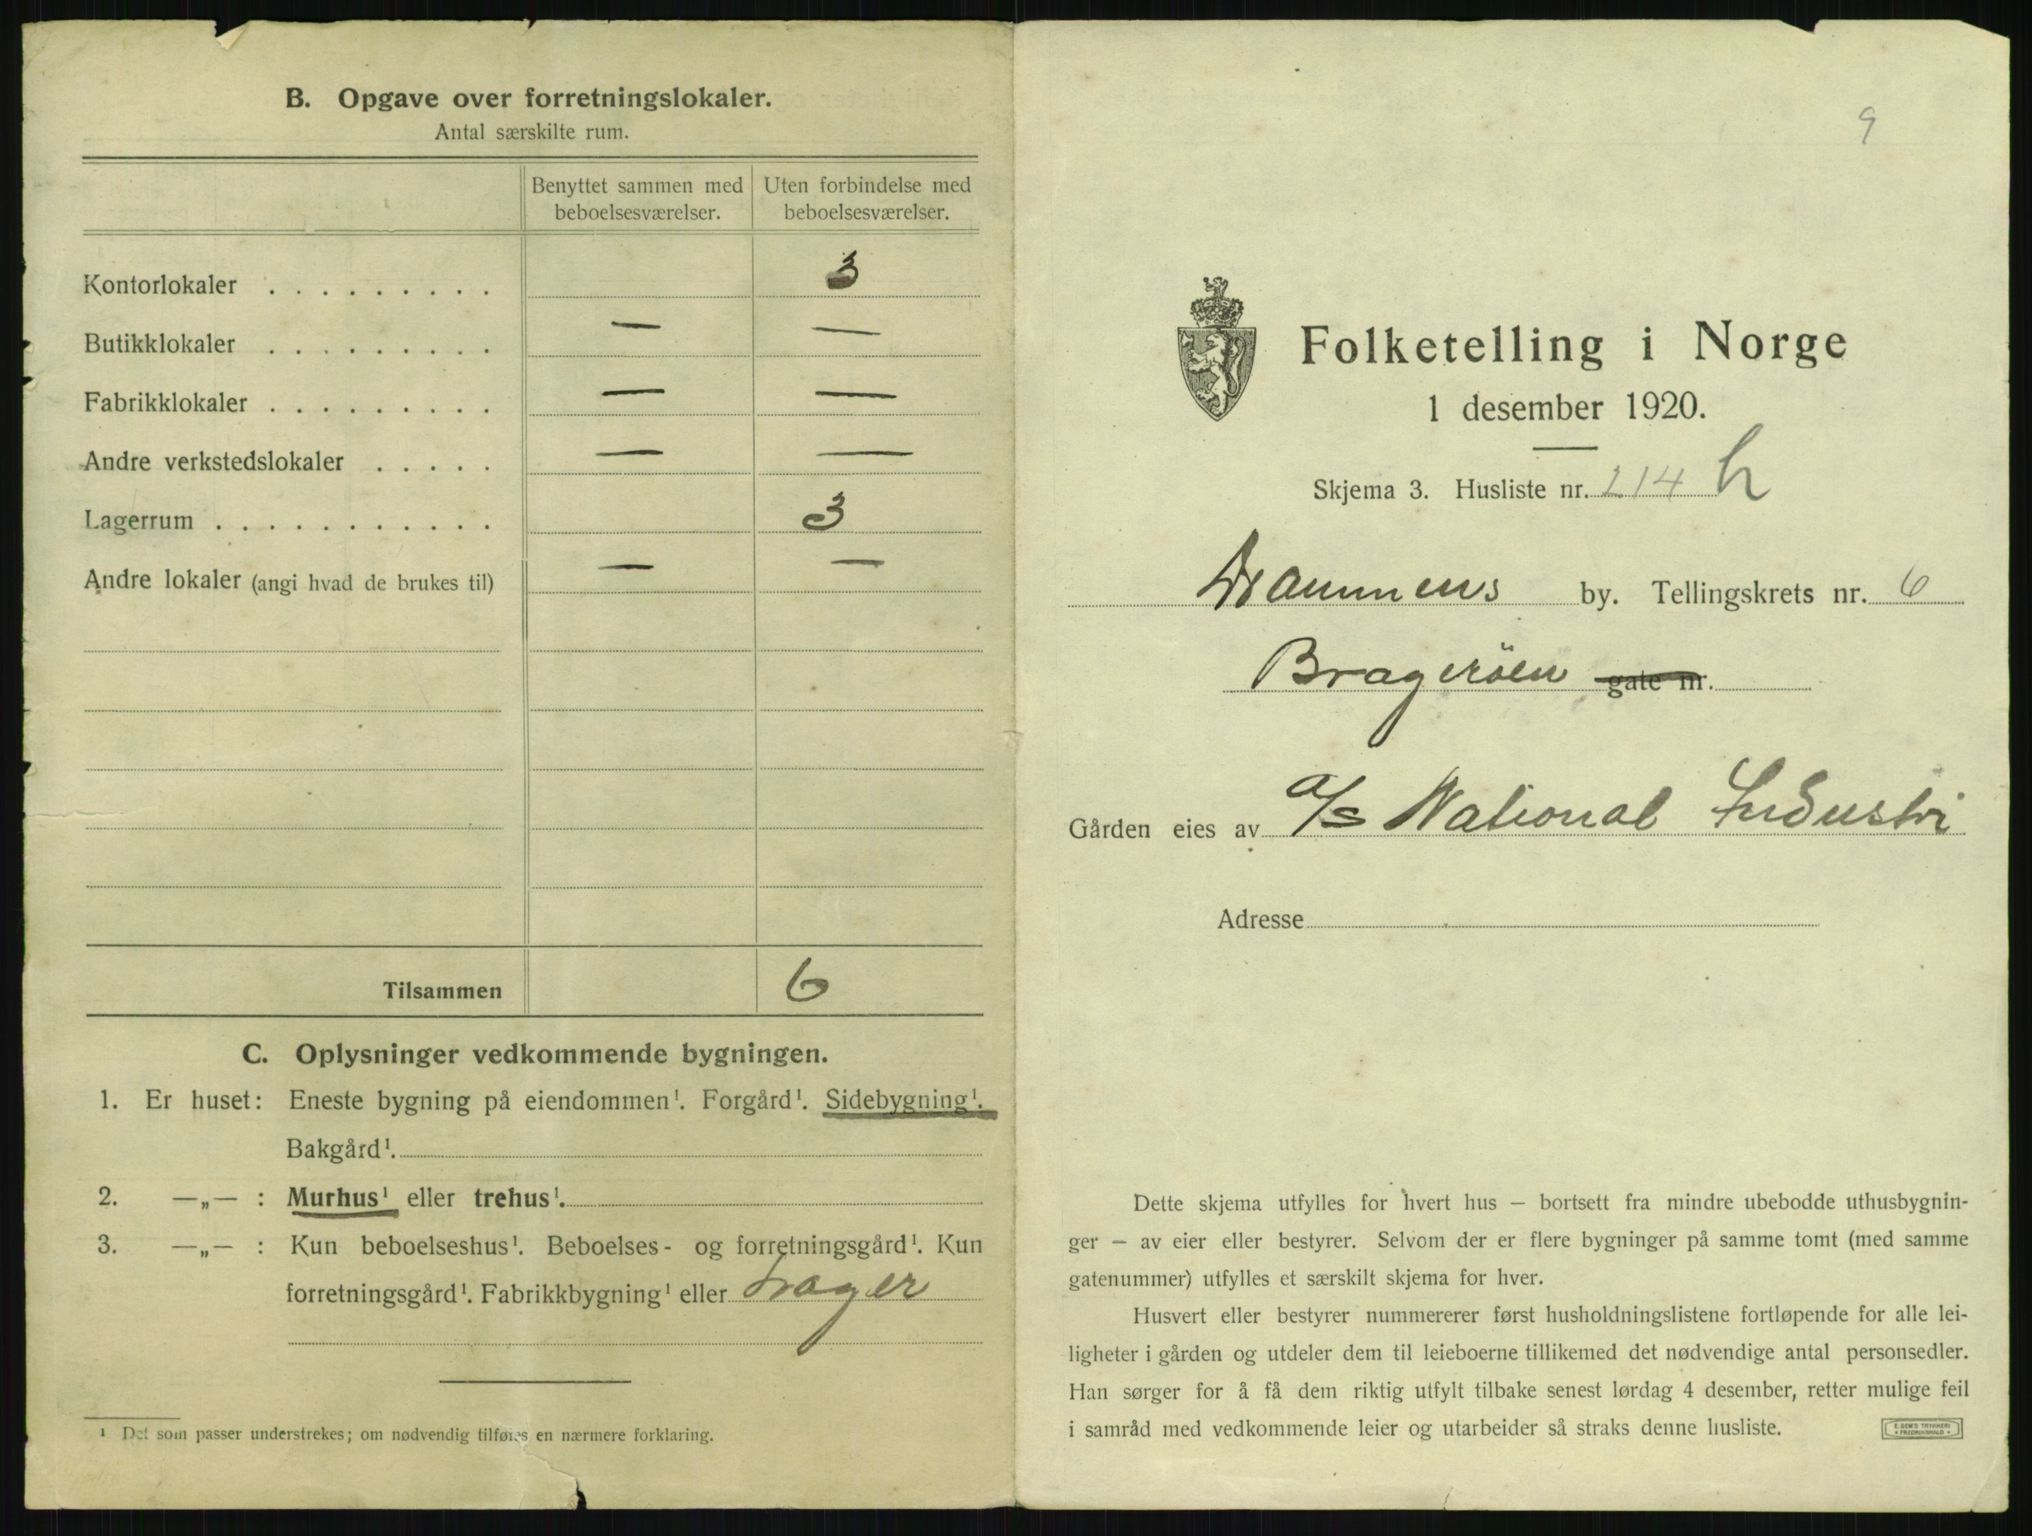 B. Opgave over forretningslokaler.
Antal særskilte rum.
Benyttet sammen med beboelsesværelser.
Uten forbindelse med beboelsesværelser.
Kontorlokaler . . . . . . . . . 3
Butikklokaler . . . . . . . . . — —
Fabrikklokaler . . . . . . . . . — —
Andre verkstedslokaler . . . . . — —
Lagerrum . . . . . . . . . . . 3
Andre lokaler (angi hvad de brukes til) — —
Tilsammen 6
C. Oplysninger vedkommende bygningen.
1. Er huset: Eneste bygning på eiendommen¹. Forgård¹. Sidebygning¹.
Bakgård¹.
2. —„— : Murhus¹ eller trehus¹.
3. —„— : Kun beboelseshus¹. Beboelses- og forretningsgård¹. Kun
forretningsgård¹. Fabrikkbygning¹ eller Lager
¹ Det som passer understrekes; om nødvendig tilføies en nærmere forklaring.
9
Folketelling i Norge
1 desember 1920.
Skjema 3. Husliste nr. 214 h
Drammens by. Tellingskrets nr. 6
Bragerøen gate nr.
Gården eies av a/s National Industri
Adresse
Dette skjema utfylles for hvert hus – bortsett fra mindre ubebodde uthusbygnin-
ger – av eier eller bestyrer. Selvom der er flere bygninger på samme tomt (med samme
gatenummer) utfylles et særskilt skjema for hver.
Husvert eller bestyrer nummererer først husholdningslistene fortløpende for alle lei-
ligheter i gården og utdeler dem til leieboerne tillikemed det nødvendige antal personsedler.
Han sørger for å få dem riktig utfylt tilbake senest lørdag 4 desember, retter mulige feil
i samråd med vedkommende leier og utarbeider så straks denne husliste.
E. SEM'S TRYKKERI
FREDRIKSHALD